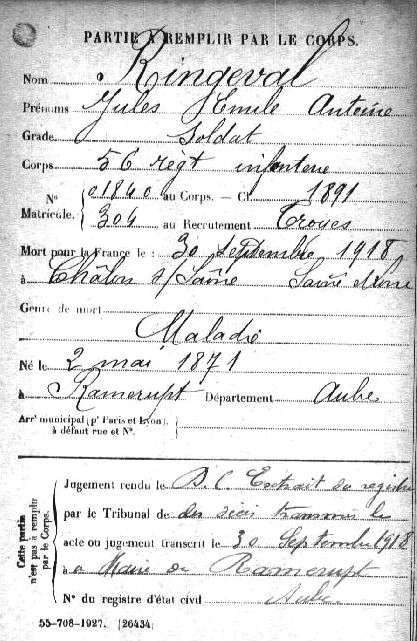 PARTIE À REMPLIR PAR LE CORPS.
Nom Ringeval
Prénoms Jules Emile Antoine
Grade Soldat
Corps 56 règt infanterie
N° 01840 au Corps. — Cl. 1891
Matricule. 304 au Recrutement Troyes
Mort pour la France le : 30 septembre 1918
à Châlon s/ Saône Saône et Loire
Genre de mort
Maladie
Né le 2 mai 1871
à Ramerupt Département Aube
Arr¹ municipal (p¹ Paris et Lyon),
à défaut rue et N°.
Cette partie
n'est pas à remplir
par le Corps.
Jugement rendu le D.C Extrait du registre
par le Tribunal de des décès transmis le
acte ou jugement transcrit le 30 Septembre 1918
à Mairie de Ramerupt
N° du registre d'état civil Aube
55-708-1927. [26434]